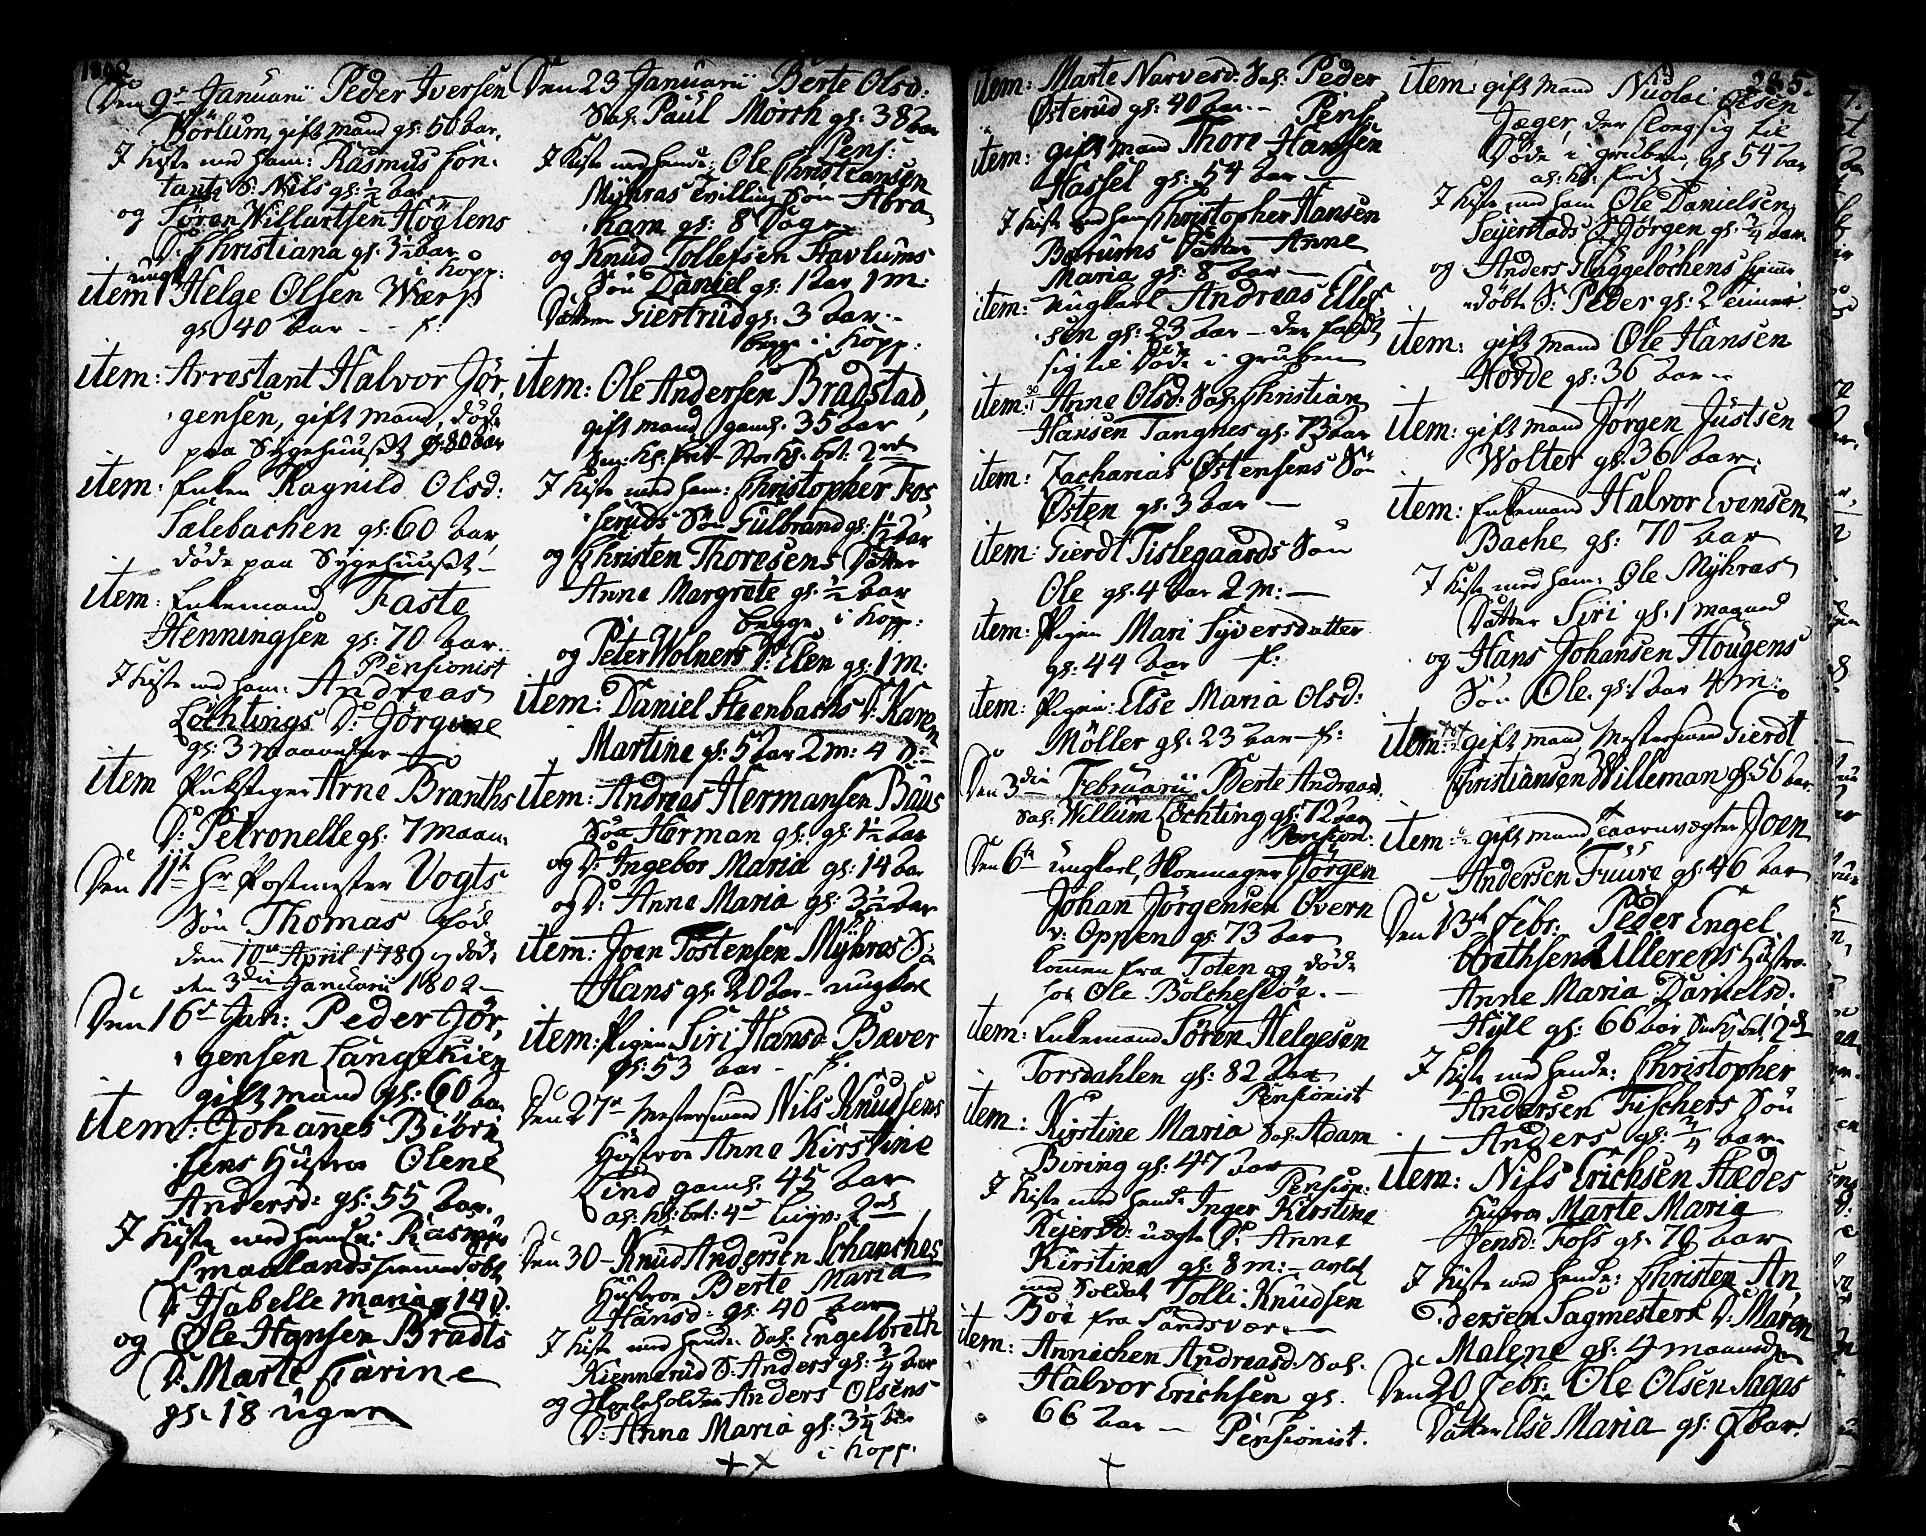 1802
Den 9de Januarii Peder Iversen
Börlum, gift mand gl: 50 aar,
I Kiste med ham: Rasmus Fon-
tants S: Nils gl: ½ aar
og Søren Willartsen Höglens
D: Christiana gl: 3½ aar
i Kopp:
item Helge Olsen Wærp
gl 40 aar - - f:
item: Arrestant Halvor Jör,
gensen, gift mand, døde
paa Sygehuuset gl: 30 aar
item: Enken Ragnild Olsd:
Salebachen gl: 60 aar,
døde paa Sygehuuset -
item: Enkemand Faste
Henningsen gl: 70 aar
Pensionist
I Kiste med ham: Andreas
Lochtings D: Jörgine
gl: 3 maaneder
item Pukstiger Arne Branths
D: Petronelle gl: 7 maan:
Den 11te Hr Postmester Vogts
Søn Thomas fød
den 10de April 1789 og døde
den 3die Januarii 1802 -
Den 16de Jan: Peder Jör,
gensen Langekien
gift mand gl: 60 aar
item: Johannes Bibri
sens Hustroe Olene
Andersd: gl: 55 aar.
I Kiste med hende: Rasmus
Smaalands hiemmedøbt
D: Isabelle Maria gl 14 D.
og Ole Hansen Bradts
D: Marte Carine
gl: 18 uger
Den 23 Januarii Berte Olsd:
Sal: Paul Mörch gl: 38 aar
Pens:
I Kiste med hende: Ole Christiansen
Myhras Tvilling Søn Abra
ham gl: 8 Dage
og Knud Tollefsen Havlums
Søn Daniel gl: 1 aar 1 m:
Datter Giertrud gl: 3 aar -
begge i Kopp:
item: Ole Andersen Bradstad,
gift mand gaml: 35 aar
I Kiste med ham: Christopher Fos,
seruds Søn Gulbrand gl: 1½ aar
og Christen Thoresens Datter
Anne Margrete gl: ½ aar
begge i Kopp:
og Peter Wolners D: Elen gl: 1 m:
item: Daniel Steenbachs D: Karen
Martine gl: 5 aar 2 m: 4 D:
item: Andreas Hermansen Baus
Søn Herman gl: gl: 1½ aar
og D: Ingebor Maria gl: 14 aar
og D: Anne Maria gl: 3½ aar
item: Joen Tostensen Myhras S:
Hans gl: 20 aar - ungkarl
item: Pigen Siri Hansd: Bæver
gl: 53 aar - f.
Den 27de Mestersvend Nils Knudsens
Hustroe Anne Kirstine
Lind gaml: 45 aar
Den 30 - Knud Andersen Schanches
Hustroe Berte Maria
Hansd: gl: 40 aar
I Kiste med hende Sal: Engelbreth
Kiennerud S: Anders gl: ¾ aar
og Anders Olsens
D: Anne Maria gl: 3¼ aar
i Kopp:
item: Marte Narvesd: Sal: Peder
Østerud gl: 40 aar - Pens:
item: gift mand Thore Hansen
Hassel gl: 54 aar -
I Kiste med ham Christopher Hansen
Bærums Datter Anne
Maria gl: 8 aar -
item: Ungkarl Andreas Ellef,
sen gl: 23 aar - der faldt
sig til Døde i gruben
item: Anne Olsd: Sal: Christian
Hansen Tangnes gl: 73 aar
item: Zacharias Østensens Søn
Østen gl: 3 aar -
item: Gierdt Tislegaards Søn
Ole gl: 4 aar 2 m: -
item: Pigen Mari Syversdatter
gl: 44 aar f:
item: Pigen: Else Maria Olsd:
Möller gl: 23 aar - f:
Den 3die Februarii Berte Andreasd:
Sal: Willum Lochting gl: 72 aar
Pension:
Den 6te ungkarl, Skomager Jörgen
Johan Jörgensen Overn
v: Oppen gl: 73 aar
kommen fra Toten og døde
hos Ole Bolcheskoe. -
item: Enkemand Søren Helgesen
Torsdahlen gl: 82 aar
Pensionist
item: Kirstine Maria Sal: Adam
Biring gl: 47 aar
Pension:
I Kiste med hende Inger Kirstine
Rejersd: uægte D: Anne
Kirstine gl: 8 m: - avlet
med Soldat Tolli Knudsen
Boe fra Sandsvær -
item: Annichen Andreasd: Sal:
Halvor Erichsen gl:
66 aar -
Pensionist.
285.
item: gift mand Nicolai Olsen
Jæger, der slog sig til
Døde i gruben, gl 54 aar
I Kiste med ham Ole Danielsen
Seijerstads S: Jörgen gl: ¾ aar
og Anders Flaggelochens hiemme
døbte S: Peder gl: 2 timer
item: gift mand Ole Hansen
Horde gl: 36 aar -
item: gift mand Jörgen Justsen
Wolter gl: 36 aar,
item: Enkemand Halvor Evensen
Bache gl: 70 aar
I Kiste med ham: Ole Myhras
Datter Siri gl: 1 maaned
og Hans Johansen Hougens
Søn Ole gl: 1 aar 4 m:
item: gift mand, Mestersvend Gierdt
Christiansen Willeman gl: 56 aar
item: gift mand, Taarnvægter Joen
Andersen Fuure gl: 46 aar
Den 13de Febr: Peder Engel
brethsen Ullerens Hustroe
Anne Maria Danielsd:
Hyll gl: 66 aar
I Kiste med hende: Christopher
Andersen Fischers Søn
Anders gl: ¾ aar
item: Nils Erichsen Stædes
Hustroe Marte Maria
Jensd: Foss gl: 70 aar
I Kiste med hende: Christen An,
dersen Sagmesters D: Maren
Malene gl: 4 maaneder
Den 20 Febr: Ole Olsen Sagas
Datter Else Maria gl: 9 aar.